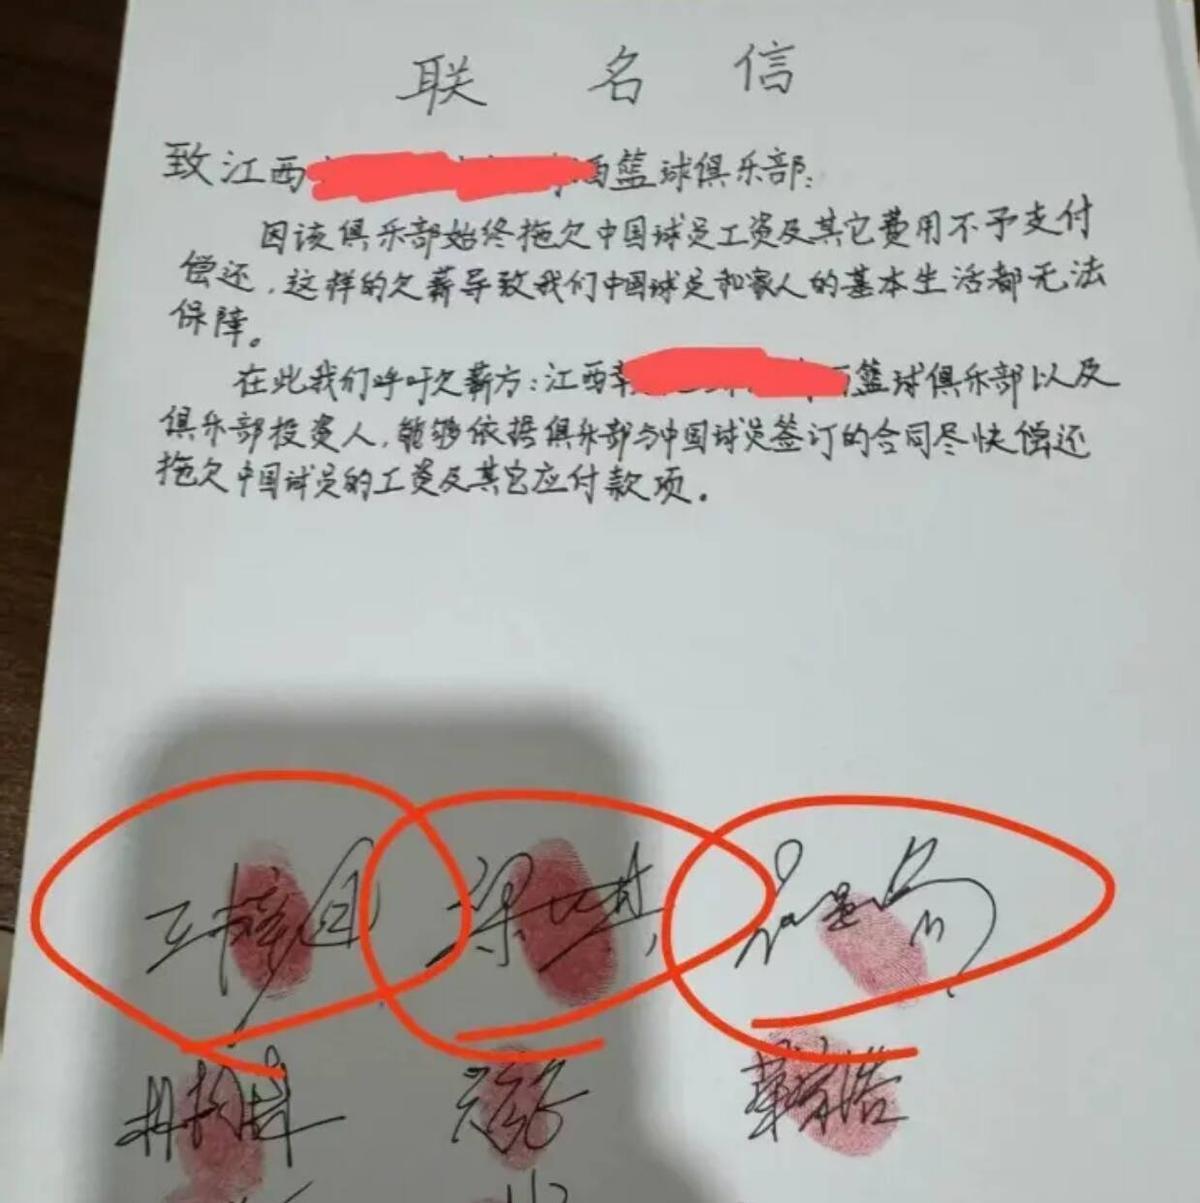 联名信
致江西 篮球俱乐部:
因该俱乐部始终拖欠中国球员工资及其它费用不予支付
偿还,这样的欠薪导致我们中国球员和家人的基本生活都无法
保障。
在此我们呼吁欠薪方:江西 篮球俱乐部以及
俱乐部投资人,能够依据俱乐部与中国球员签订的合同尽快偿还
拖欠中国球员的工资及其它应付款项。